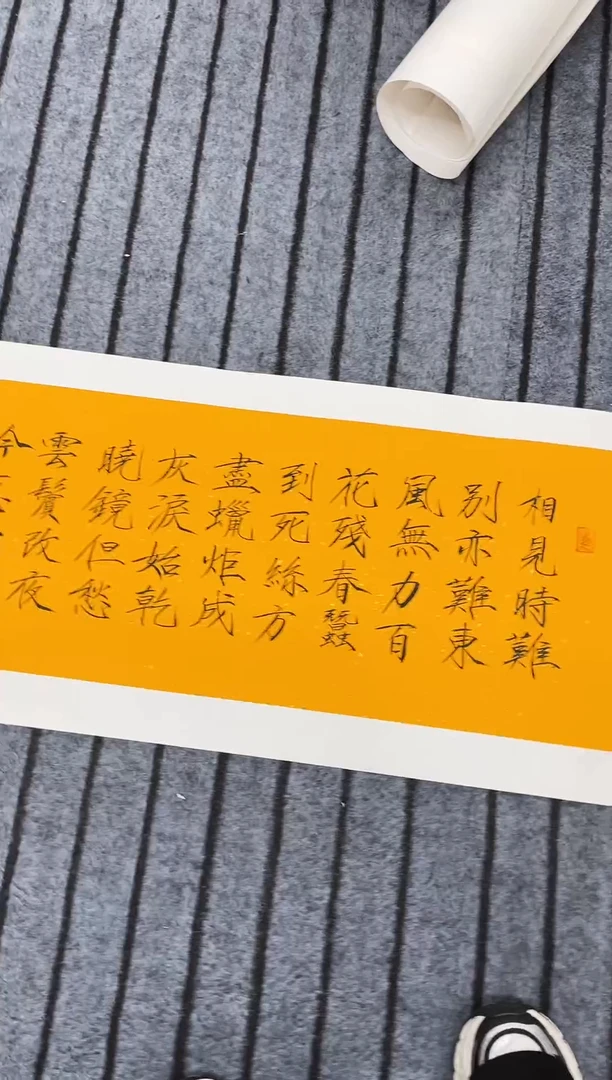 相見時難
別亦難東
風無力百
花殘春蠶
到死絲方
盡蠟炬成
灰淚始乾
曉鏡但愁
雲鬢改夜